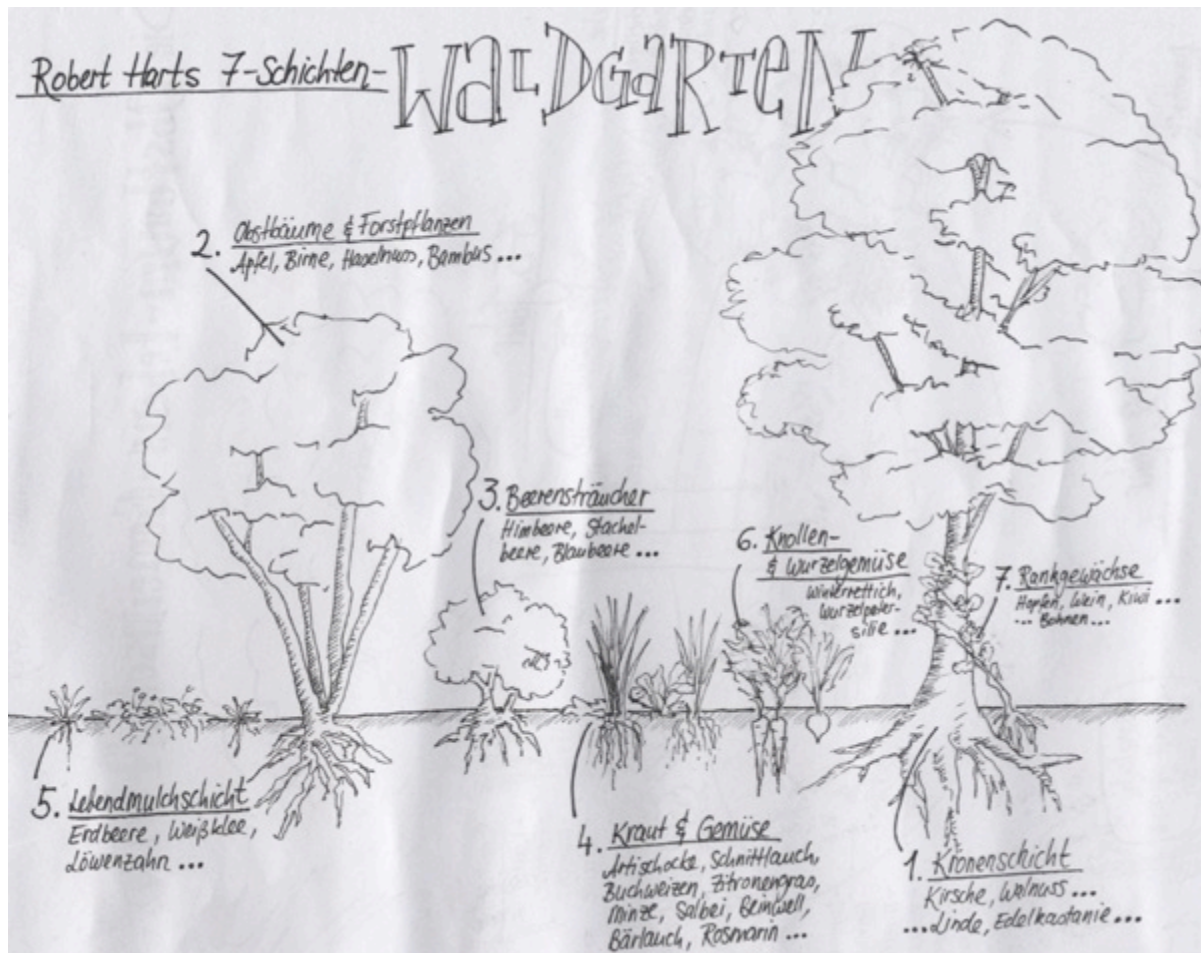 Robert Harts 7-Schichten-
WALDGARTEN
2. Obstbäume & Forstpflanzen
Apfel, Birne, Haselnuss, Bambus ...
3. Beerensträucher
Himbeere, Stachel-
beere, Blaubeere ...
6. Knollen-
& Wurzelgemüse
Winterrettich,
Wurzelpeter-
silie ...
7. Rankgewächse
Hopfen, Wein, Kiwi ...
... Bohnen ...
5. Lebendmulchschicht
Erdbeere, Weißklee,
Löwenzahn ...
4. Kraut & Gemüse
Artischocke, Schnittlauch,
Buchweizen, Zitronengras,
Minze, Salbei, Beinwell,
Bärlauch, Rosmarin ...
1. Kronenschicht
Kirsche, Walnuss ...
... Linde, Edelkastanie ...